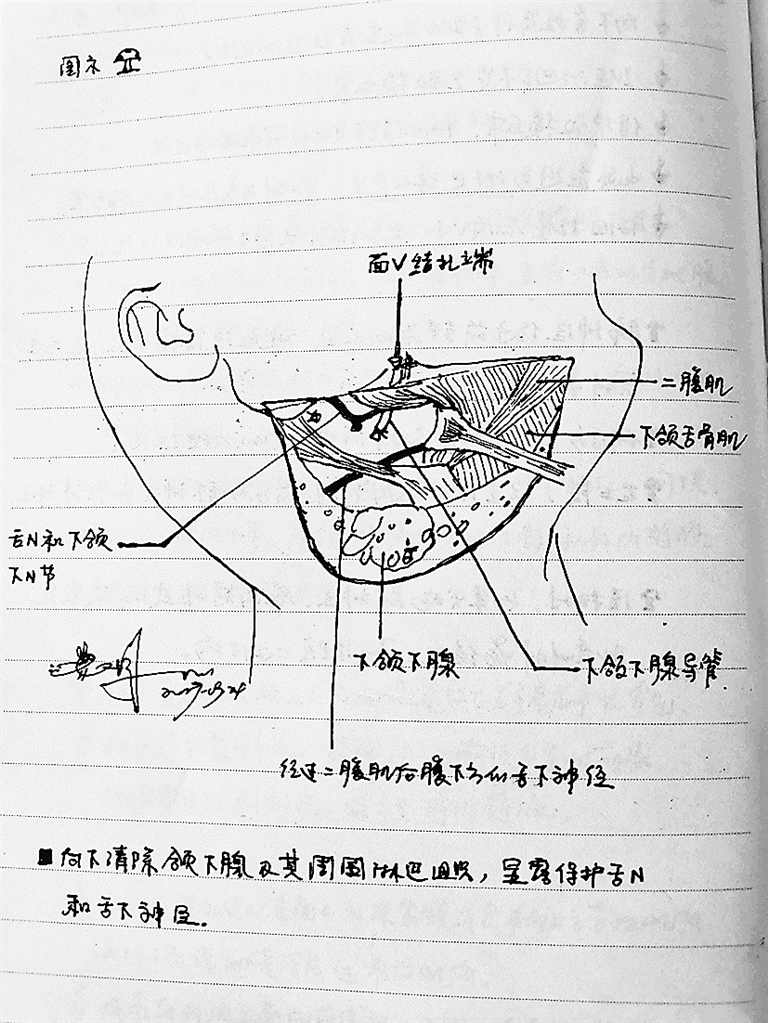 图示
面V结扎端
二腹肌
下颌舌骨肌
舌N和下颌
下N节
下颌下腺
下颌下腺导管
经过二腹肌后腹下方的舌下神经
■向下清除颌下腺及其周围淋巴组织，呈露保护舌N
和舌下神经.